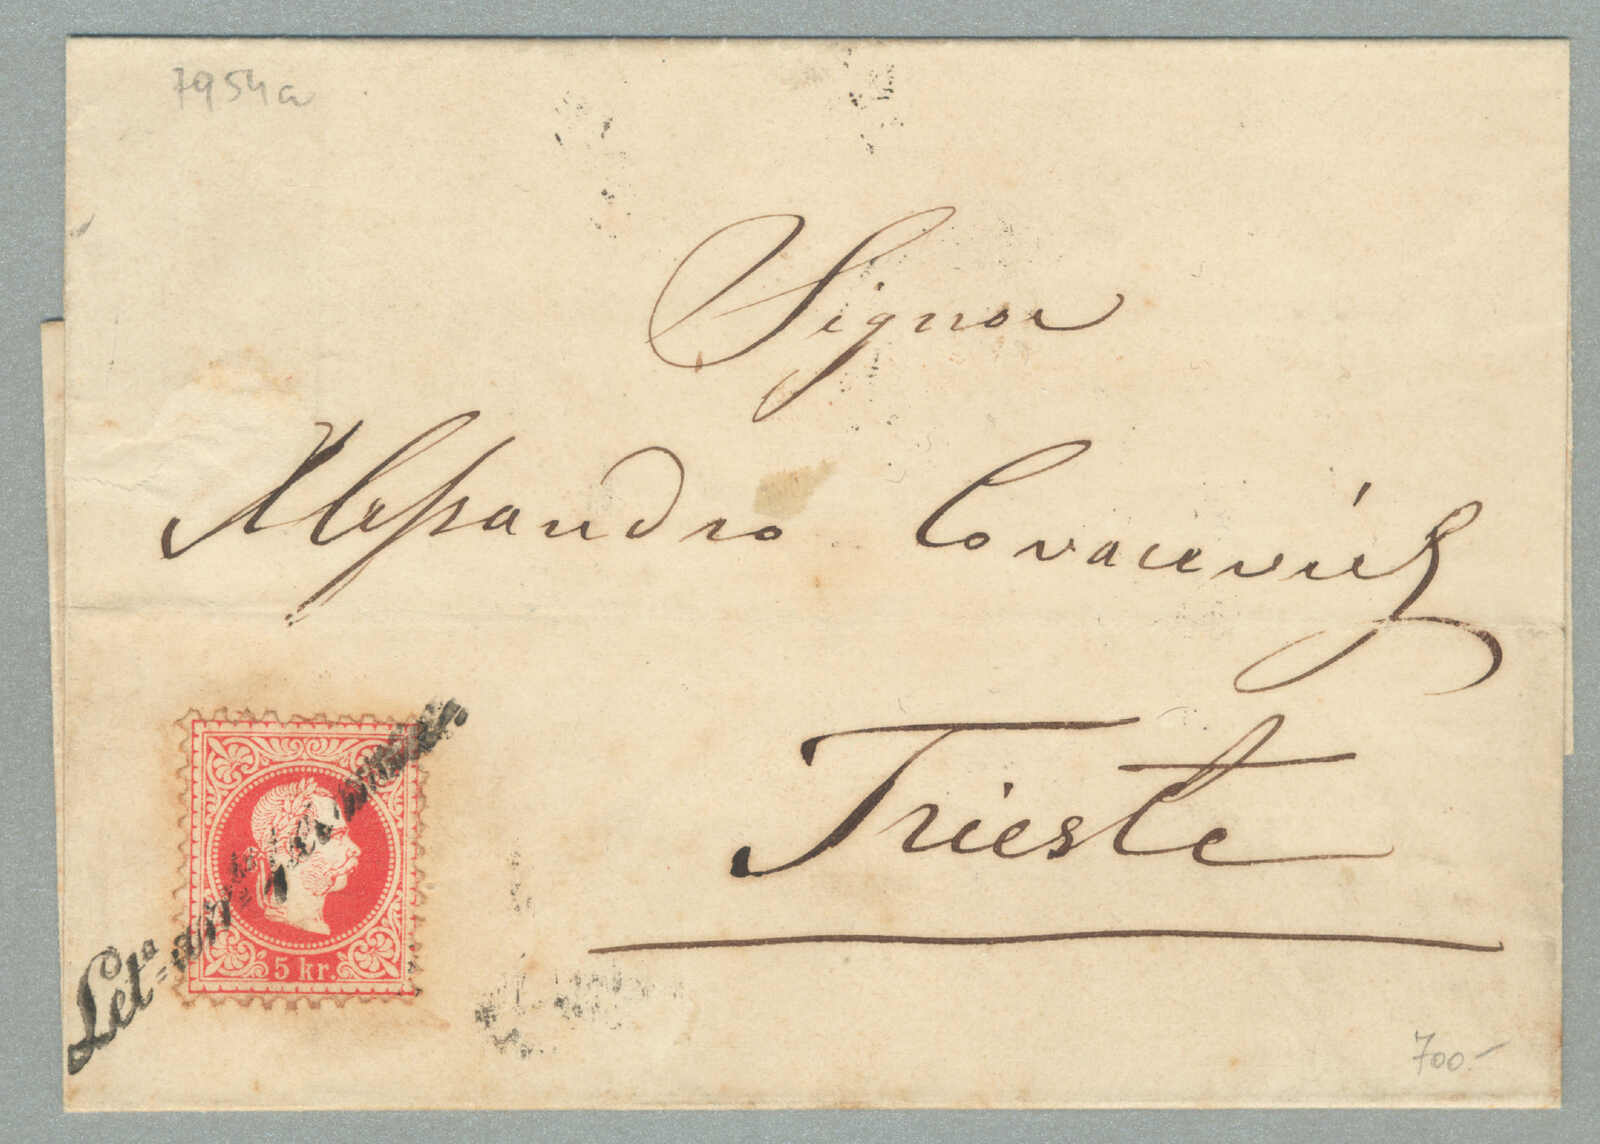 7954a
Signor
Alessandro Covacevich
Trieste
Let.a arr.ta
5 kr.
700.-